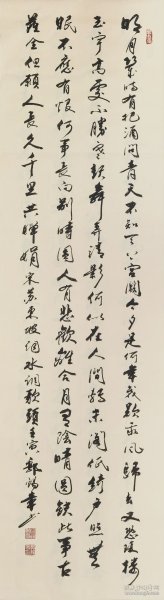 明月幾時有把酒問青天不知天上宮闕今夕是何年我欲乘風歸去又恐瓊樓
玉宇高處不勝寒起舞弄清影何似在人間轉朱閣低綺戶照無
眠不應有恨何事長向別時圓人有悲歡離合月有陰晴圓缺此事古
難全但願人長久千里共嬋娟宋蘇東坡詞水調歌頭